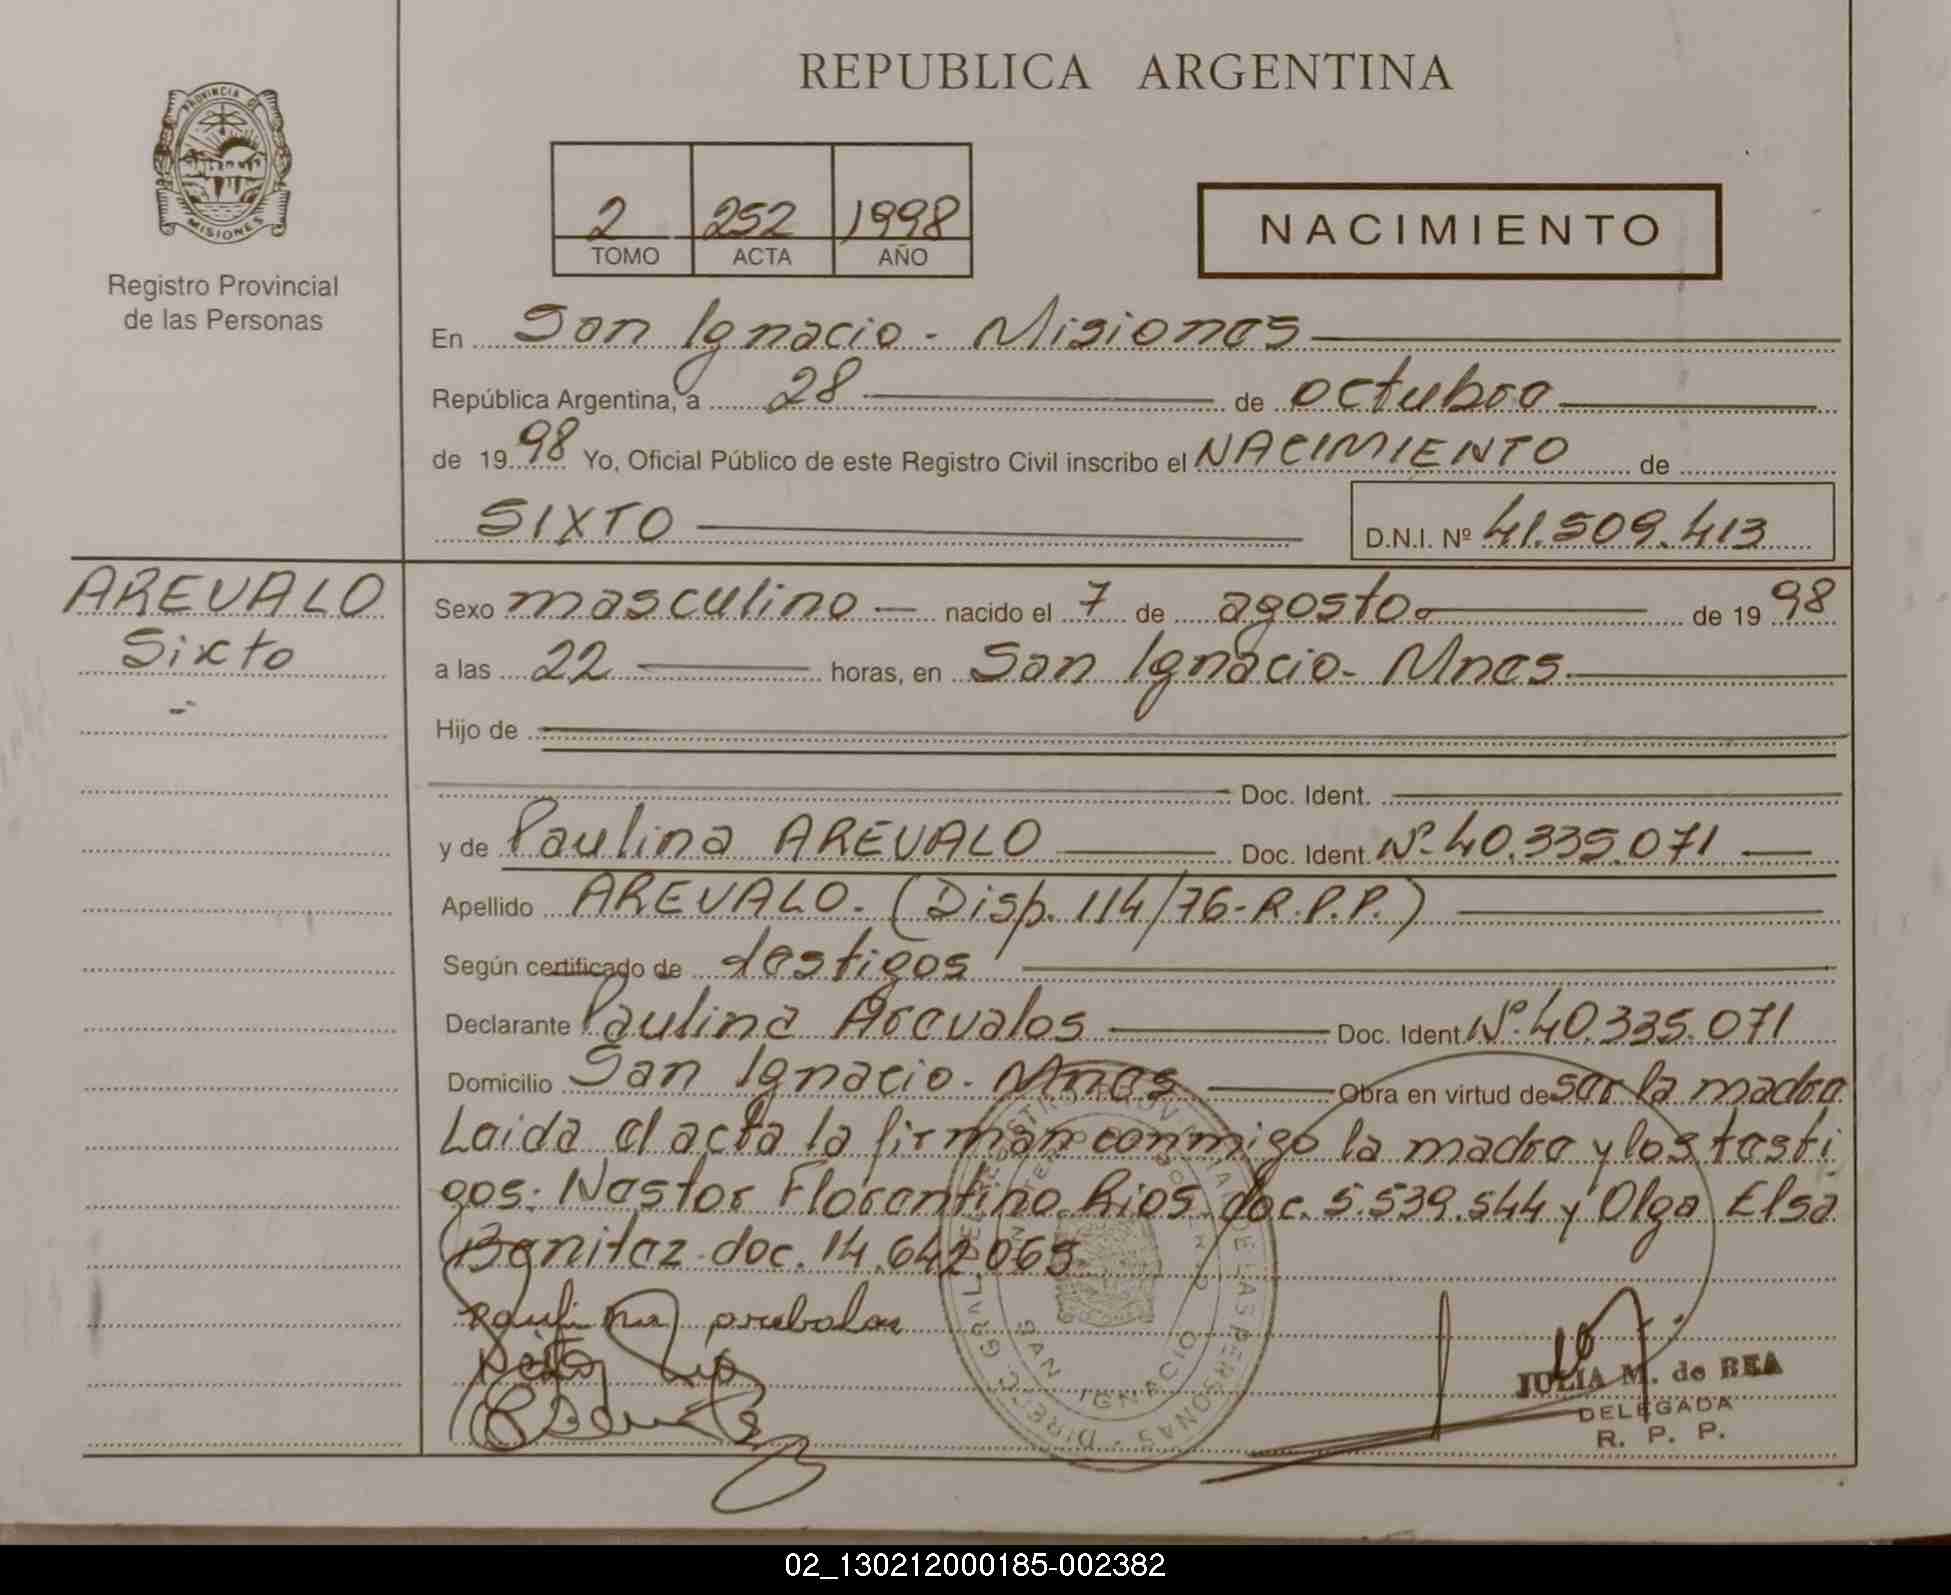 REPUBLICA ARGENTINA
PROVINCIA DE
MISIONES
Registro Provincial
de las Personas
2 252 1998
TOMO ACTA AÑO
NACIMIENTO
En San Ignacio - Misiones
República Argentina, a 28 de octubre
de 19 98 Yo, Oficial Público de este Registro Civil inscribo el NACIMIENTO de
SIXTO
D.N.I. Nº 41.509.413
AREVALO
Sixto
Sexo masculino nacido el 7 de agosto de 19 98
a las 22 horas, en San Ignacio - Mnes.
Hijo de
Doc. Ident.
y de Paulina AREVALO Doc. Ident. Nº 40.335.071
Apellido AREVALO. (Disp. 114/76-R.P.P.)
Según certificado de testigos
Declarante Paulina Arevalos Doc. Ident. Nº 40.335.071
Domicilio San Ignacio. Mnes Obra en virtud de ser la madre.
Leida el acta la firman conmigo la madre y los testi-
gos: Nestor Florentino Rios doc. 5.539.544 y Olga Elsa
Benitez doc. 14.642.063.
SAN IGNACIO
JULIA M. de BEA
DELEGADA
R. P. P.
02_130212000185-002382